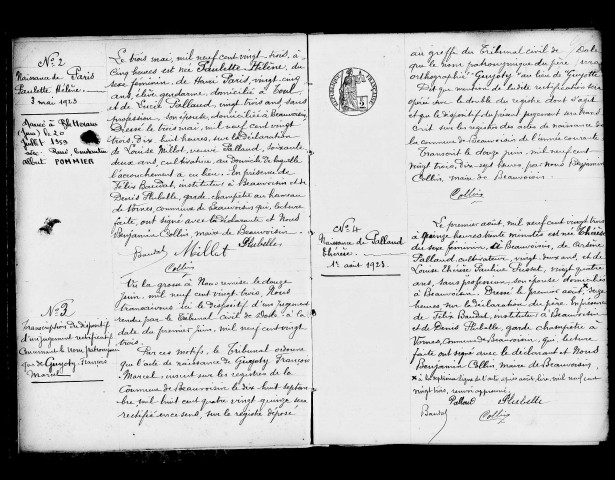 N° 2
Naissance de Paris
Paulette Hélène.
3 mai 1923
Marié à
Juillet 1959
avec René
Albert POMMIER
Le trois mai, mil neuf cent vingt-trois, à
cinq heures est née Paulette-Hélène, du
sexe féminin, de Henri Paris, vingt-cinq
ans, élève gendarme, domicilié à Toul
et de Lucie Pallaud, vingt trois ans sans
profession, son épouse, domiciliés à Beauvoisin,
Dressé le trois mai, mil neuf cent vingt
trois, dix huit heures, sur la déclaration
de Louise Millet, veuve Pallaud, soixante
deux ans, cultivatrice, au domicile de laquelle
l'accouchement a eu lieu. En présence de
Félix Baudat, instituteur à Beauvoisin et de
Denis Plubelle, garde champêtre au hameau
de Vornes, commune de Beauvoisin qui, lecture
faite, ont signé avec la déclarante et Nous
Benjamin Collin, maire de Beauvoisin.
Baudat Millet Plubelle
Collin
N° 3
Transcription du dispositif
d'un jugement rectificatif
concernant le nom patronymi
que de Guyoty François
Marcel
Vu la grosse à Nous remise le douze
juin, mil neuf cent vingt trois, Nous
transcrivons ici le dispositif d'un jugement
rendu par le Tribunal civil de Dole à la
date du premier juin, mil neuf cent vingt
trois.
Par ces motifs, le Tribunal ordonne
que l'acte de naissance de Guyoty François
Marcel inscrit sur les registres de la
commune de Beauvoisin le dix huit septem
bre mil huit cent quatre vingt quinze sera
rectifié en ce sens, sur le registre déposé
au greffe du Tribunal civil de Dole
que le nom patronymique du père sera
orthographié "Guyoty" au lieu de Guyotte
Dit que mention de ladite rectification sera
opérée sur le double du registre dont s'agit
et que le dispositif du présent jugement sera trans
crit sur les registres des actes de naissance de
la commune de Beauvoisin de l'année courante
Transcrit le douze juin, mil neuf cent
vingt trois, dix sept heures par Nous Benjamin
Collin, maire de Beauvoisin.
Collin
N° 4
Naissance de Pallaud
Thérèse
1er août 1923.
Le premier août, mil neuf cent vingt trois
à quinze heures trente minutes est née Thérèse
du sexe féminin, à Beauvoisin, de
Pallaud cultivateur, vingt deux ans, et de
Louise Thérèse Pauline vingt quatre
ans, sans profession, son épouse domiciliés
à Beauvoisin. Dressé le premier août, seize
heures sur la déclaration du père. En présence
de Félix Baudat, instituteur à Beauvoisin
et de Denis Plubelle, garde champêtre à
Vornes, commune de Beauvoisin qui, lecture
faite ont signé avec le déclarant et Nous
Benjamin Collin, maire de Beauvoisin,
x à la septième ligne de l'acte, après août, lire, mil neuf cent
vingt trois, renvoi approuvé.
Pallaud Plubelle
Baudat Collin